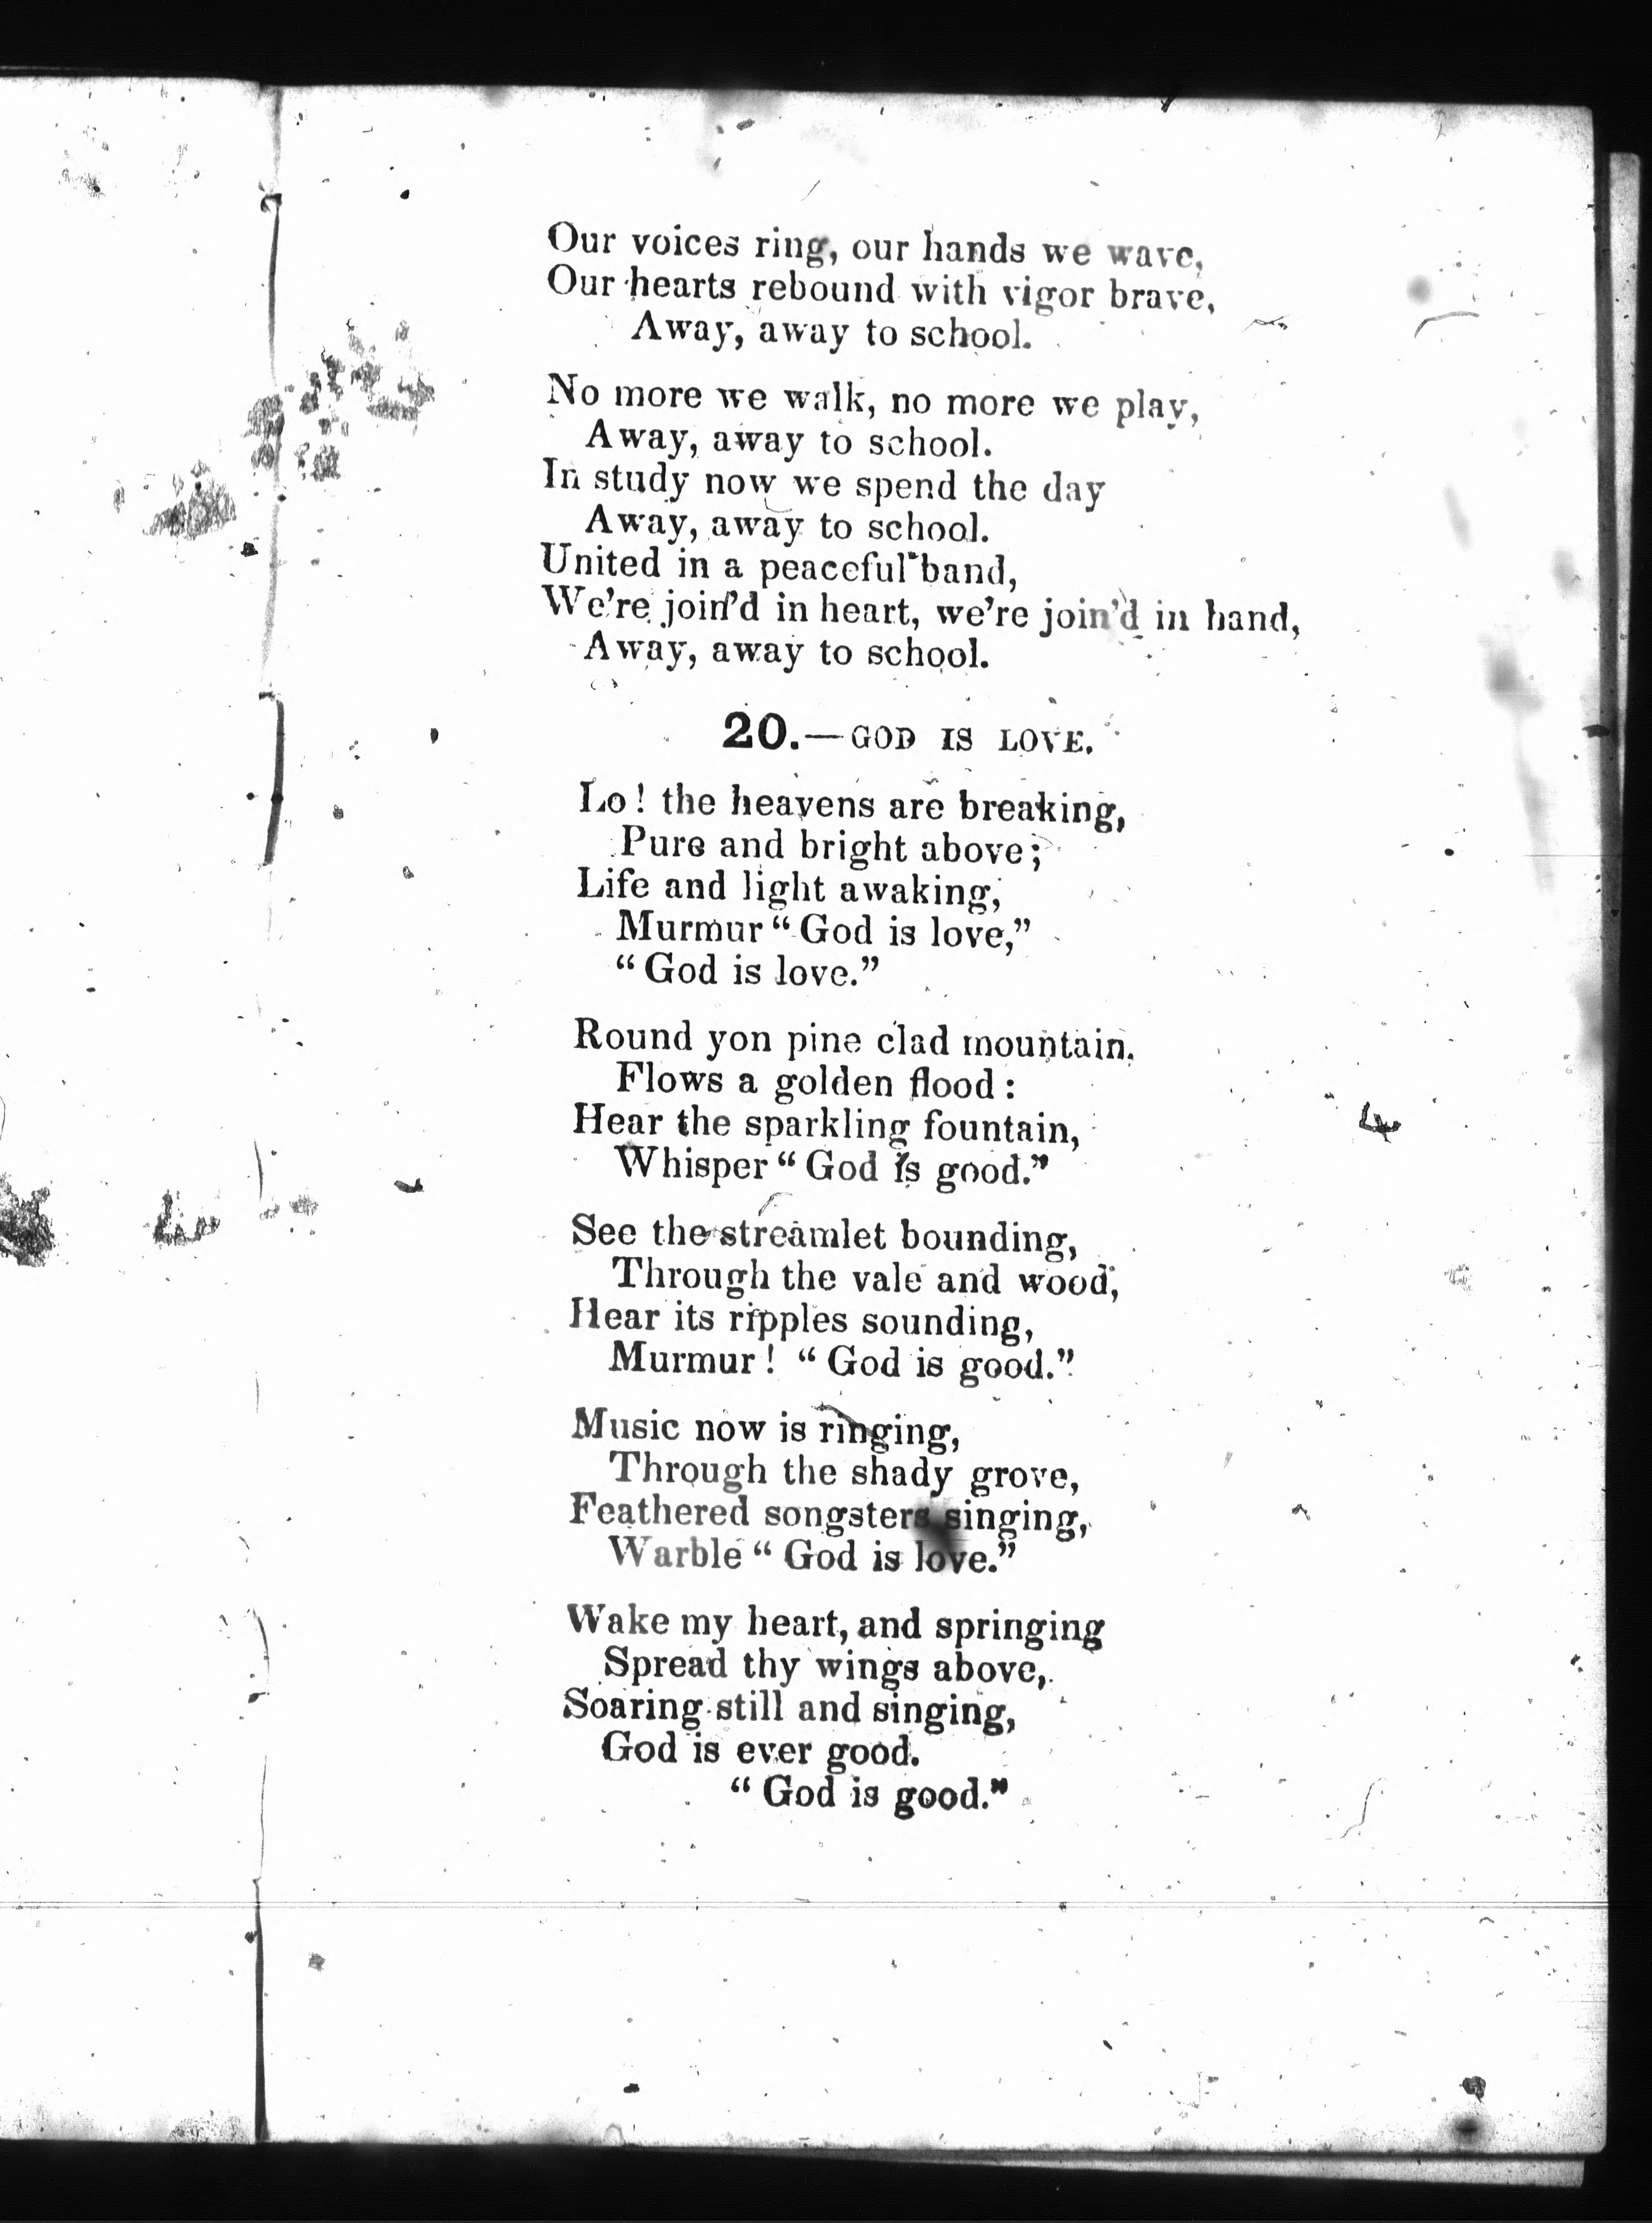 Our voices ring, our hands we wave,
Our hearts rebound with vigor brave,
Away, away to school.
No more we walk, no more we play,
Away, away to school.
In study now we spend the day
Away, away to school.
United in a peaceful band,
We're join'd in heart, we're join'd in hand,
Away, away to school.
20.—GOD IS LOVE.
Lo! the heavens are breaking,
Pure and bright above;
Life and light awaking,
Murmur “God is love,”
“God is love.”
Round yon pine clad mountain.
Flows a golden flood:
Hear the sparkling fountain,
Whisper “God is good.”
See the streamlet bounding,
Through the vale and wood,
Hear its ripples sounding,
Murmur! “God is good.”
Music now is ringing,
Through the shady grove,
Feathered songsters singing,
Warble “God is love.”
Wake my heart, and springing
Spread thy wings above,
Soaring still and singing,
God is ever good.
“God is good.”